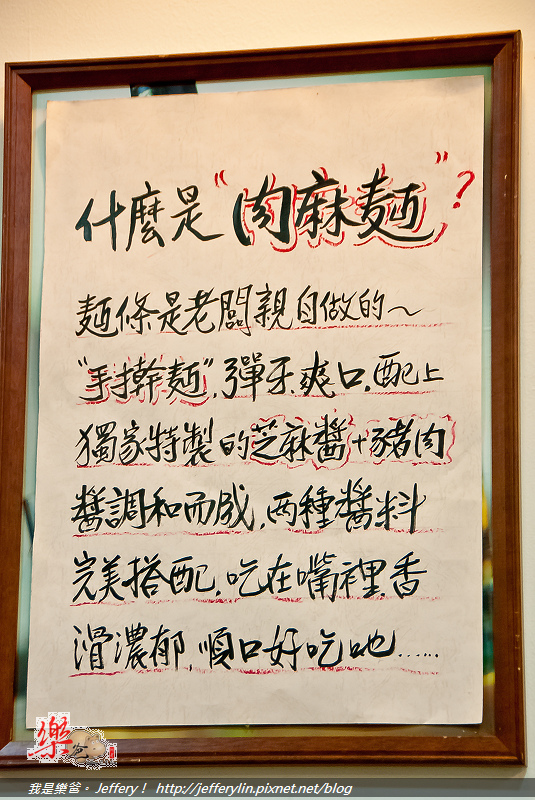 什麼是"肉麻麵"?
麵條是老闆親自做的~
"手擀麵",彈牙爽口,配上
獨家特製的芝麻醬+豬肉
醬調和而成,兩種醬料
完美搭配,吃在嘴裡,香
滑濃郁,順口好吃吔……
樂爸
我是樂爸。Jeffery! http://jefferylin.pixnet.net/blog